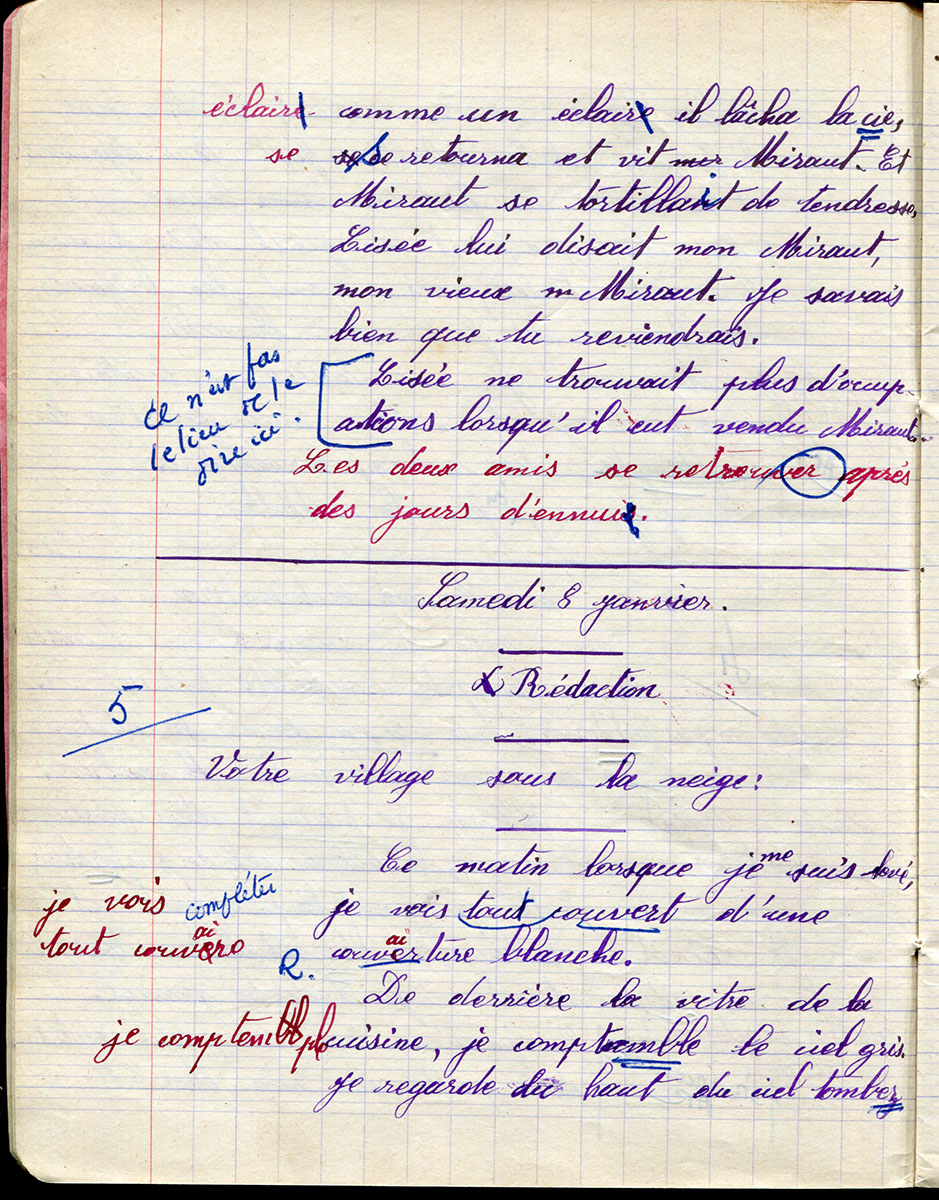 éclaire comme un éclaire il lâcha la cie,
se se retourna et vit Miraut. Et
Miraut se tortillait de tendresse,
Lisée lui disait mon Miraut,
mon vieux m Miraut. Je savais
bien que tu reviendrais.
Ce n'est pas
le lieu de le
dire ici.
Lisée ne trouvait plus d'occup-
ations lorsqu'il eut vendu Miraut.
Les deux amis se retrouver après
des jours d'ennuis.
Samedi 8 janvier.
Rédaction
5
Votre village sous la neige:
Ce matin lorsque je me suis levé,
je vois compléter je vois tout couvert d'une
tout couvere ai R. couverture ai blanche.
De derrière la vitre de la
je comptembl cuisine, je comptemble le ciel gris.
Je regarde du haut du ciel tomber